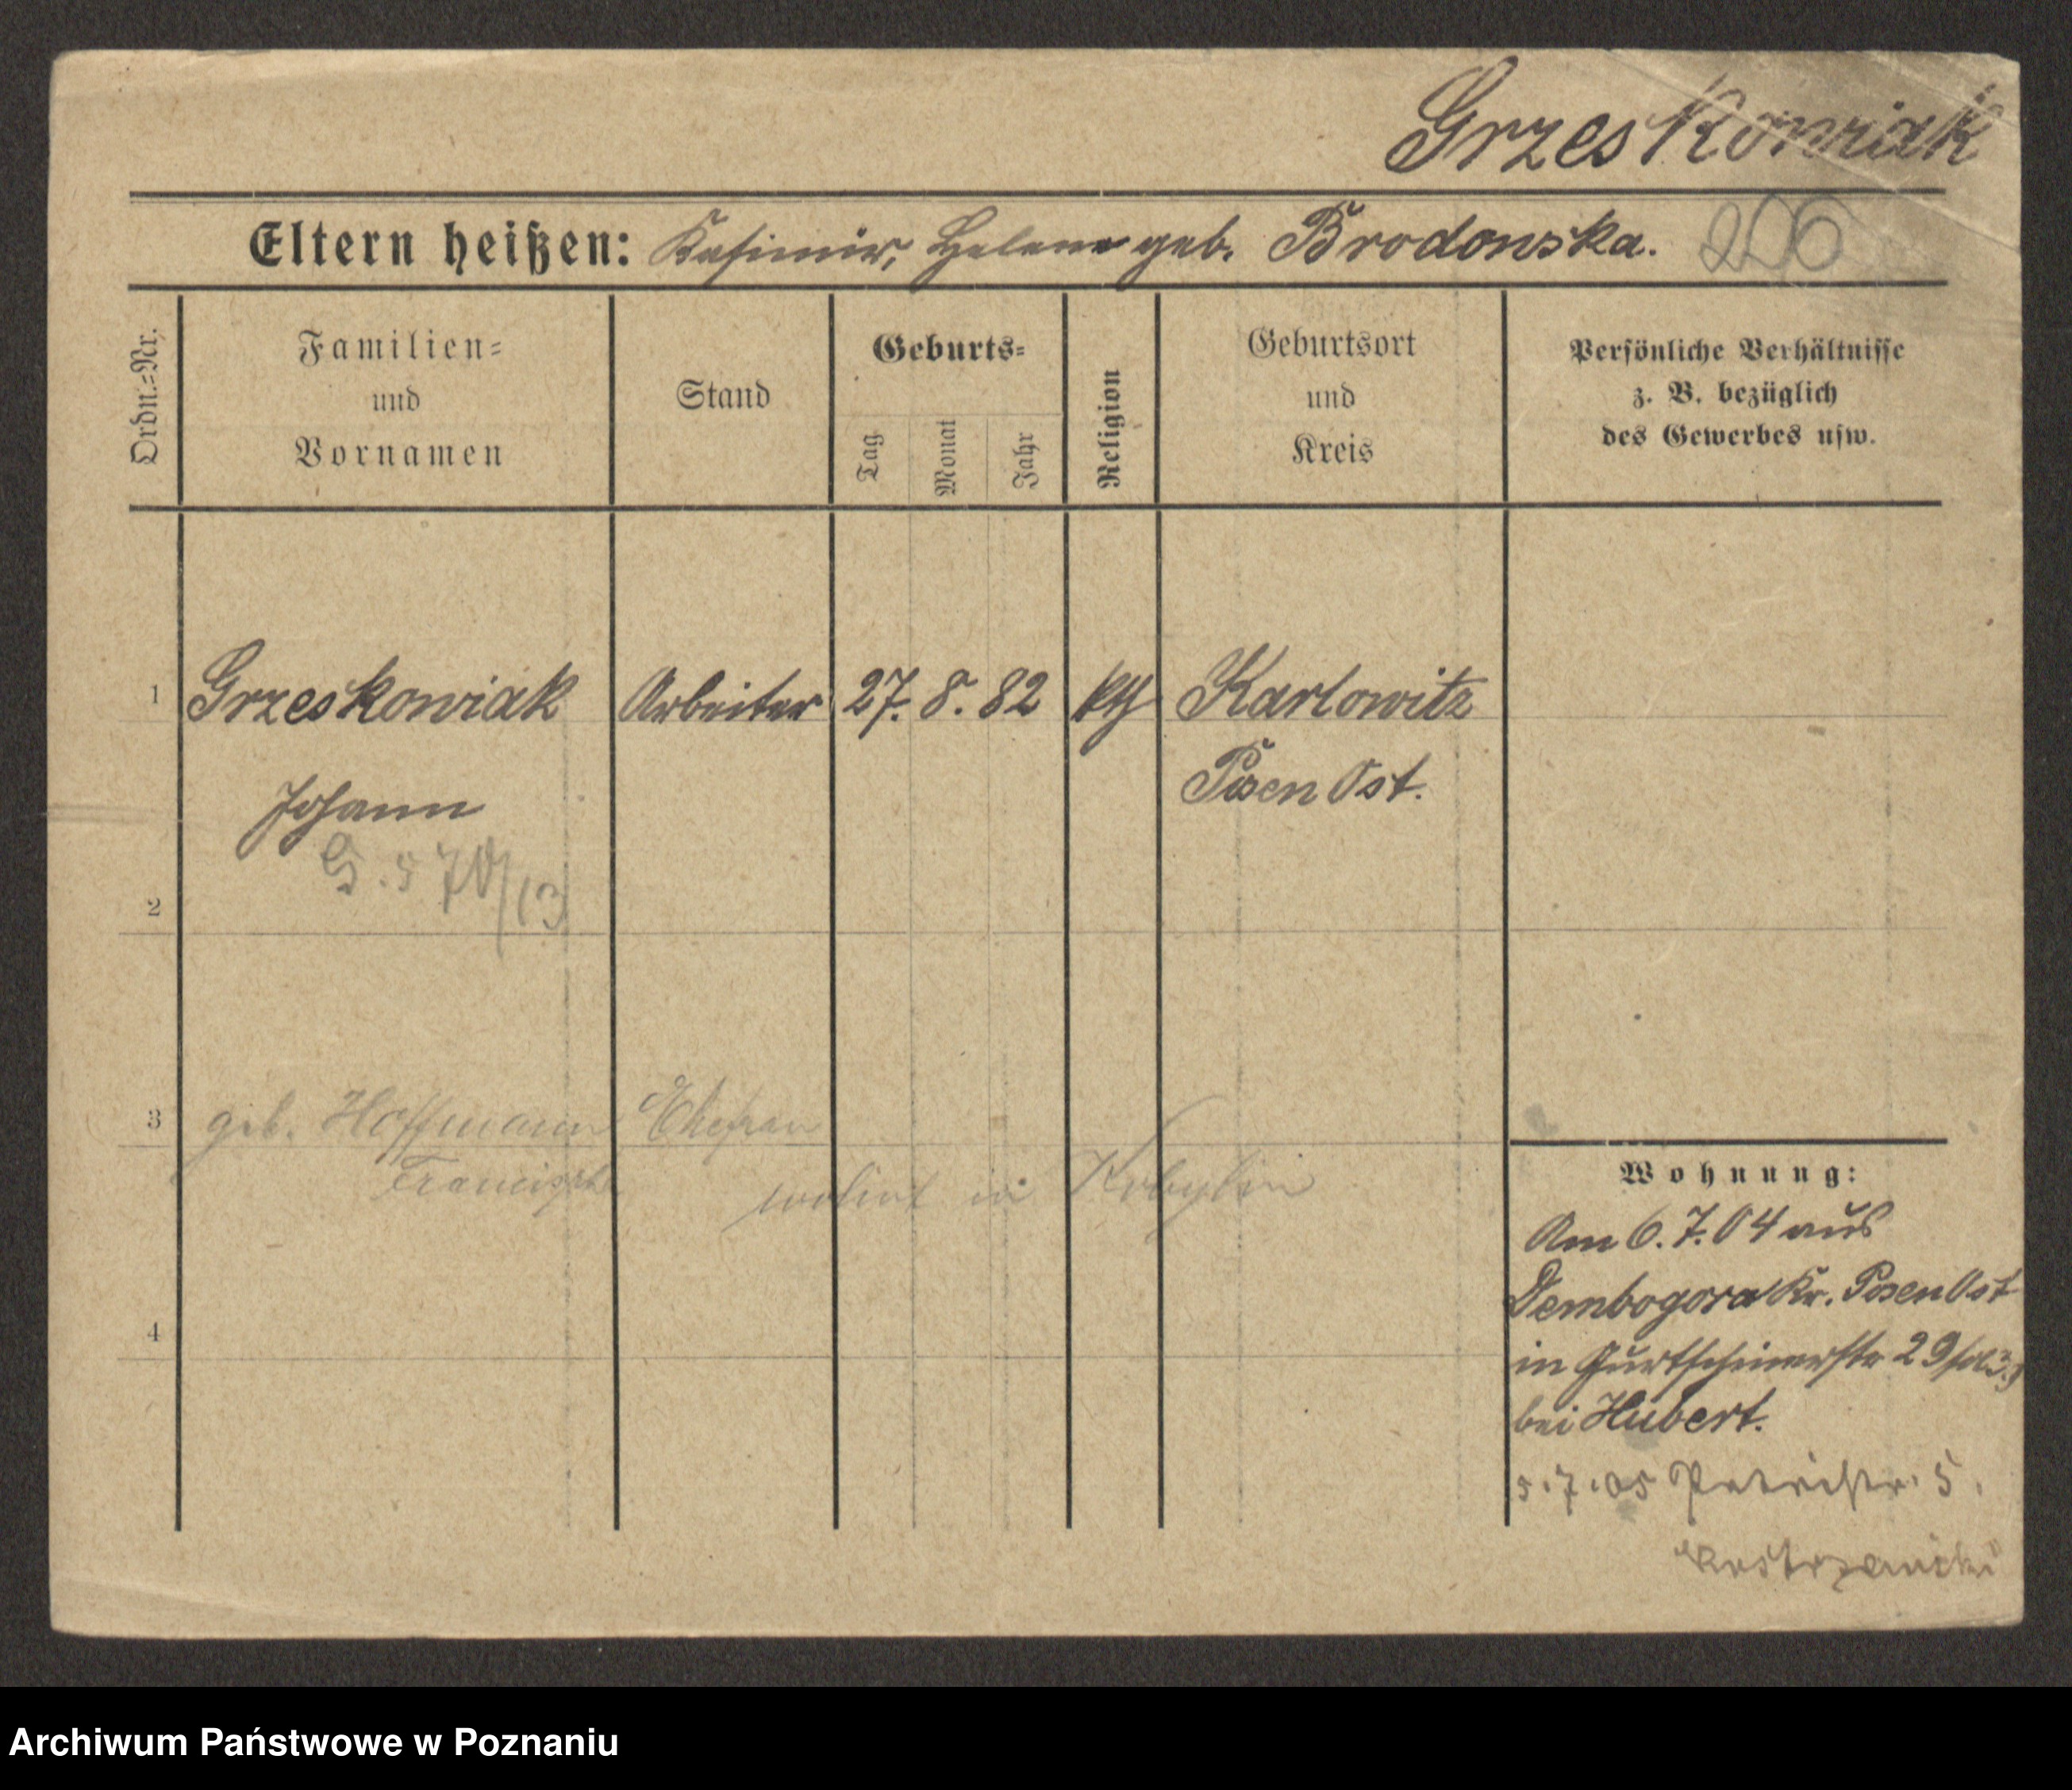 Grzeskowiak
Eltern heißen: Kasimir, Helene geb. Brodowska. 206
Ordn.=Nr.
Familien=
und
Vornamen
Stand
Geburts=
Tag
Monat
Jahr
Religion
Geburtsort
und
Kreis
Persönliche Verhältnisse
z. B. bezüglich
des Gewerbes usw.
1 Grzeskowiak Arbeiter 27. 8. 82 kth Karlowitz
Johann Posen Ost.
G. 570/13
2
3 geb. Hoffmann Ehefrau
Francisca wohnt in Kobylin
Wohnung:
Am 6.7.04 aus
Dembogora Kr. Posen Ost
in Gurtschinerstr 29
bei Hubert.
4
5.7.05 Patristr. 5.
Archiwum Państwowe w Poznaniu